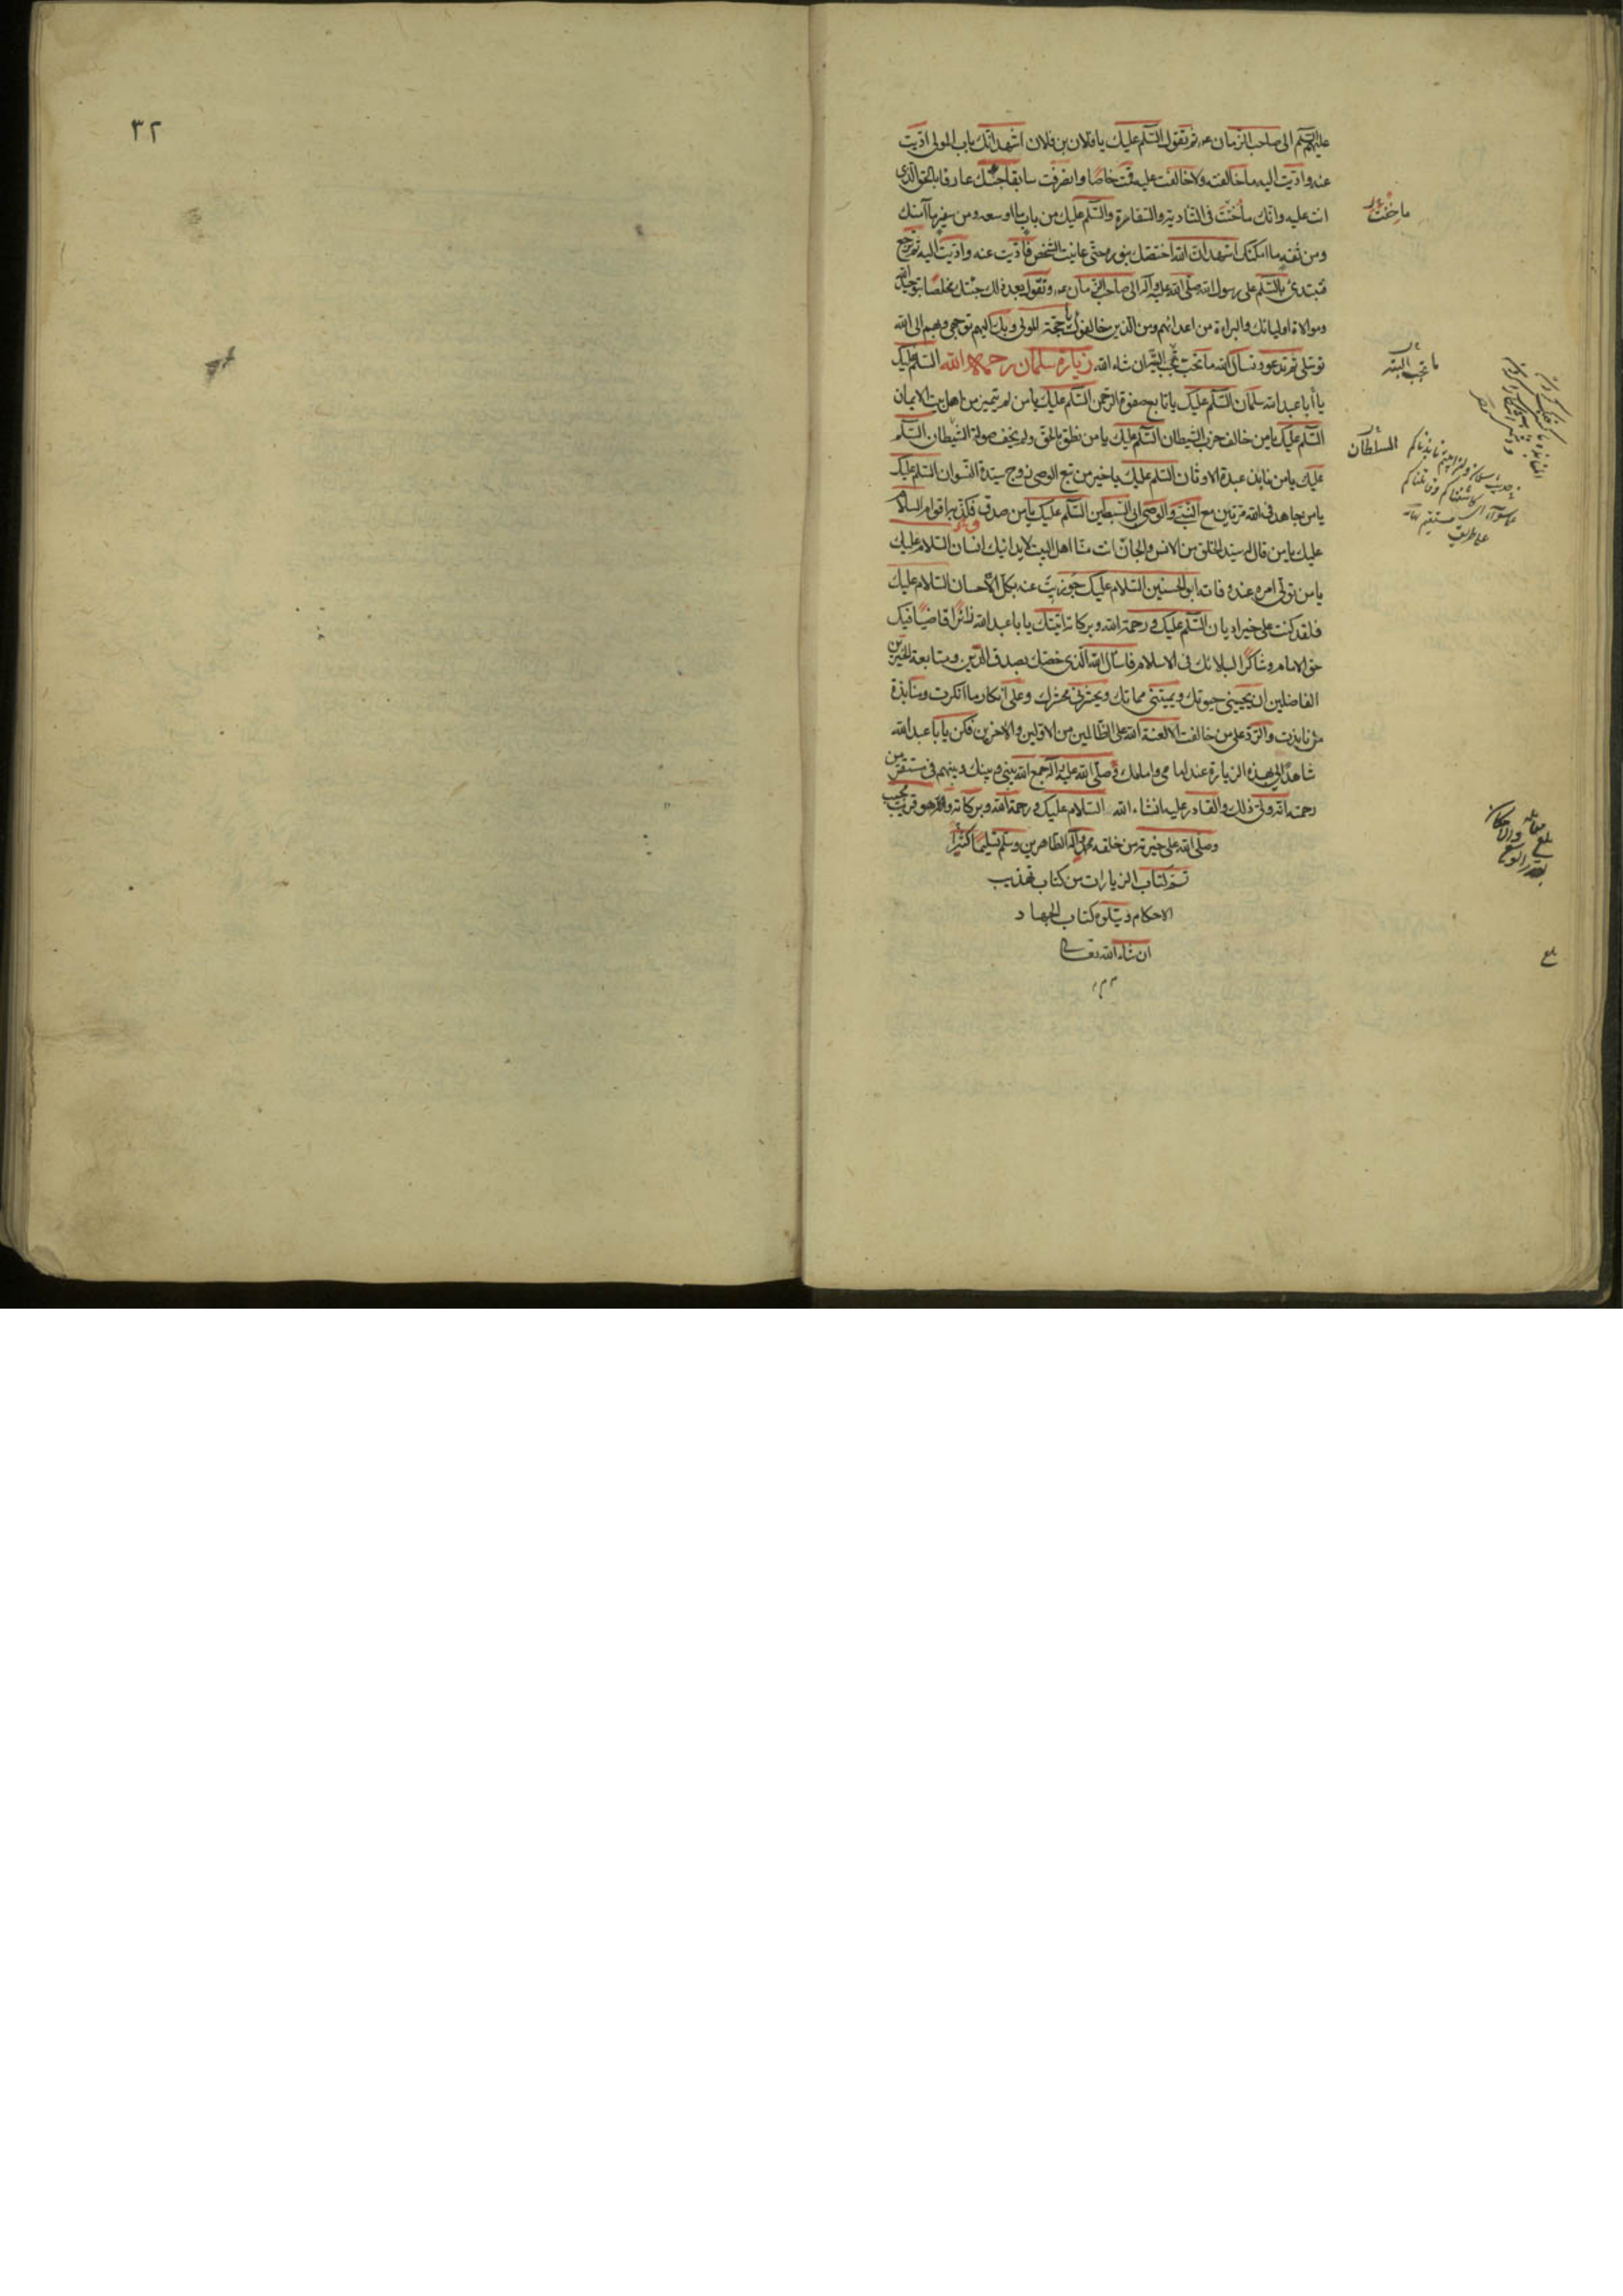 عليهم السلم الى صاحب الزمان عم ثم تقول السلم عليك يا فلان بن فلان اشهد انك باب المولى اديت
عنه واديت اليه ما خالفته ولا خالفت عليه قمت خاصا وانصرفت سابقا جئتك عارفا بالحق الذى
انت عليه وانك ما خنت فى التأدية والسفارة والسلم عليك من باب ما اوسعه ومن سفير ما آمنك
ومن ثقة ما امكنك اشهد ان الله اختصك بنوره حتى عاينت الشخص فاديت عنه واديت اليه ثم ترجع
فتبتدئ بالسلم على رسول الله صلى الله عليه وآله الى صاحب الزمان عم وتقول بعد ذلك جئتك مخلصا بتوحيد الله
وموالاة اوليائك والبراءة من اعدائهم ومن الذين خالفوك يا حجة المولى وبك اليهم توجهى وبهم الى الله
توسلى ثم تدعو وتسأل الله ما تحب تجب ان شاء الله زيارة سلمان رحمه الله السلم عليك
يا أبا عبد الله سلمان السلم عليك يا تابع صفوة الرحمن السلم عليك يا من لم يتميز من اهل بيت الايمان
السلم عليك يا من خالف حزب الشيطان السلم عليك يا من نطق بالحق ولم يخف صولة الشيطان السلم
عليك يا من نابذ عبدة الاوثان السلم عليك يا خير من تبع الوصى زوج سيدة النسوان السلم عليك
يا من جاهد فى الله مرتين مع النبى والوصى ابى السبطين السلم عليك يا من صدق فكذبه اقوام السلام
عليك يا من قال له سيد الخلق من الانس والجان انت منا اهل البيت لا يدانيك انسان السلام عليك
يا من تولى امره عند وفاته ابو الحسنين السلام عليك جوزيت عنه بكل الاحسان السلام عليك
فلقد كنت على خير اديان السلم عليك ورحمة الله وبركاته اتيتك يا با عبد الله زائرا قاضيا فيك
حق الامام وشاكرا لبلائك فى الاسلام فاسأل الله الذى خصك بصدق الدين ومتابعة الخيرين
الفاضلين ان يحيينى حيوتك ويميتنى مماتك ويحشرنى محشرك وعلى انكار ما انكرت ومنابذة
من نابذت والرد على من خالفت الا لعنة الله على الظالمين من الاولين والاخرين فكن يا با عبد الله
شاهدا لى بهذه الزيارة عند امامى وامامك صلى الله عليه وآله جمع الله بينى وبينك وبينهم فى مستقر من
رحمته انه ولى ذلك والقادر عليه انشاء الله السلام عليك ورحمة الله وبركاته وانه هو قريب مجيب
وصلى الله على خيرته من خلقه محمد وآله الطاهرين وسلم تسليما كثيرا
تم كتاب الزيارات من كتاب تهذيب
الاحكام ويتلوه كتاب الجهاد
ان شاء الله تعالى
ما خنت
السلطان
بلغ
٣٢